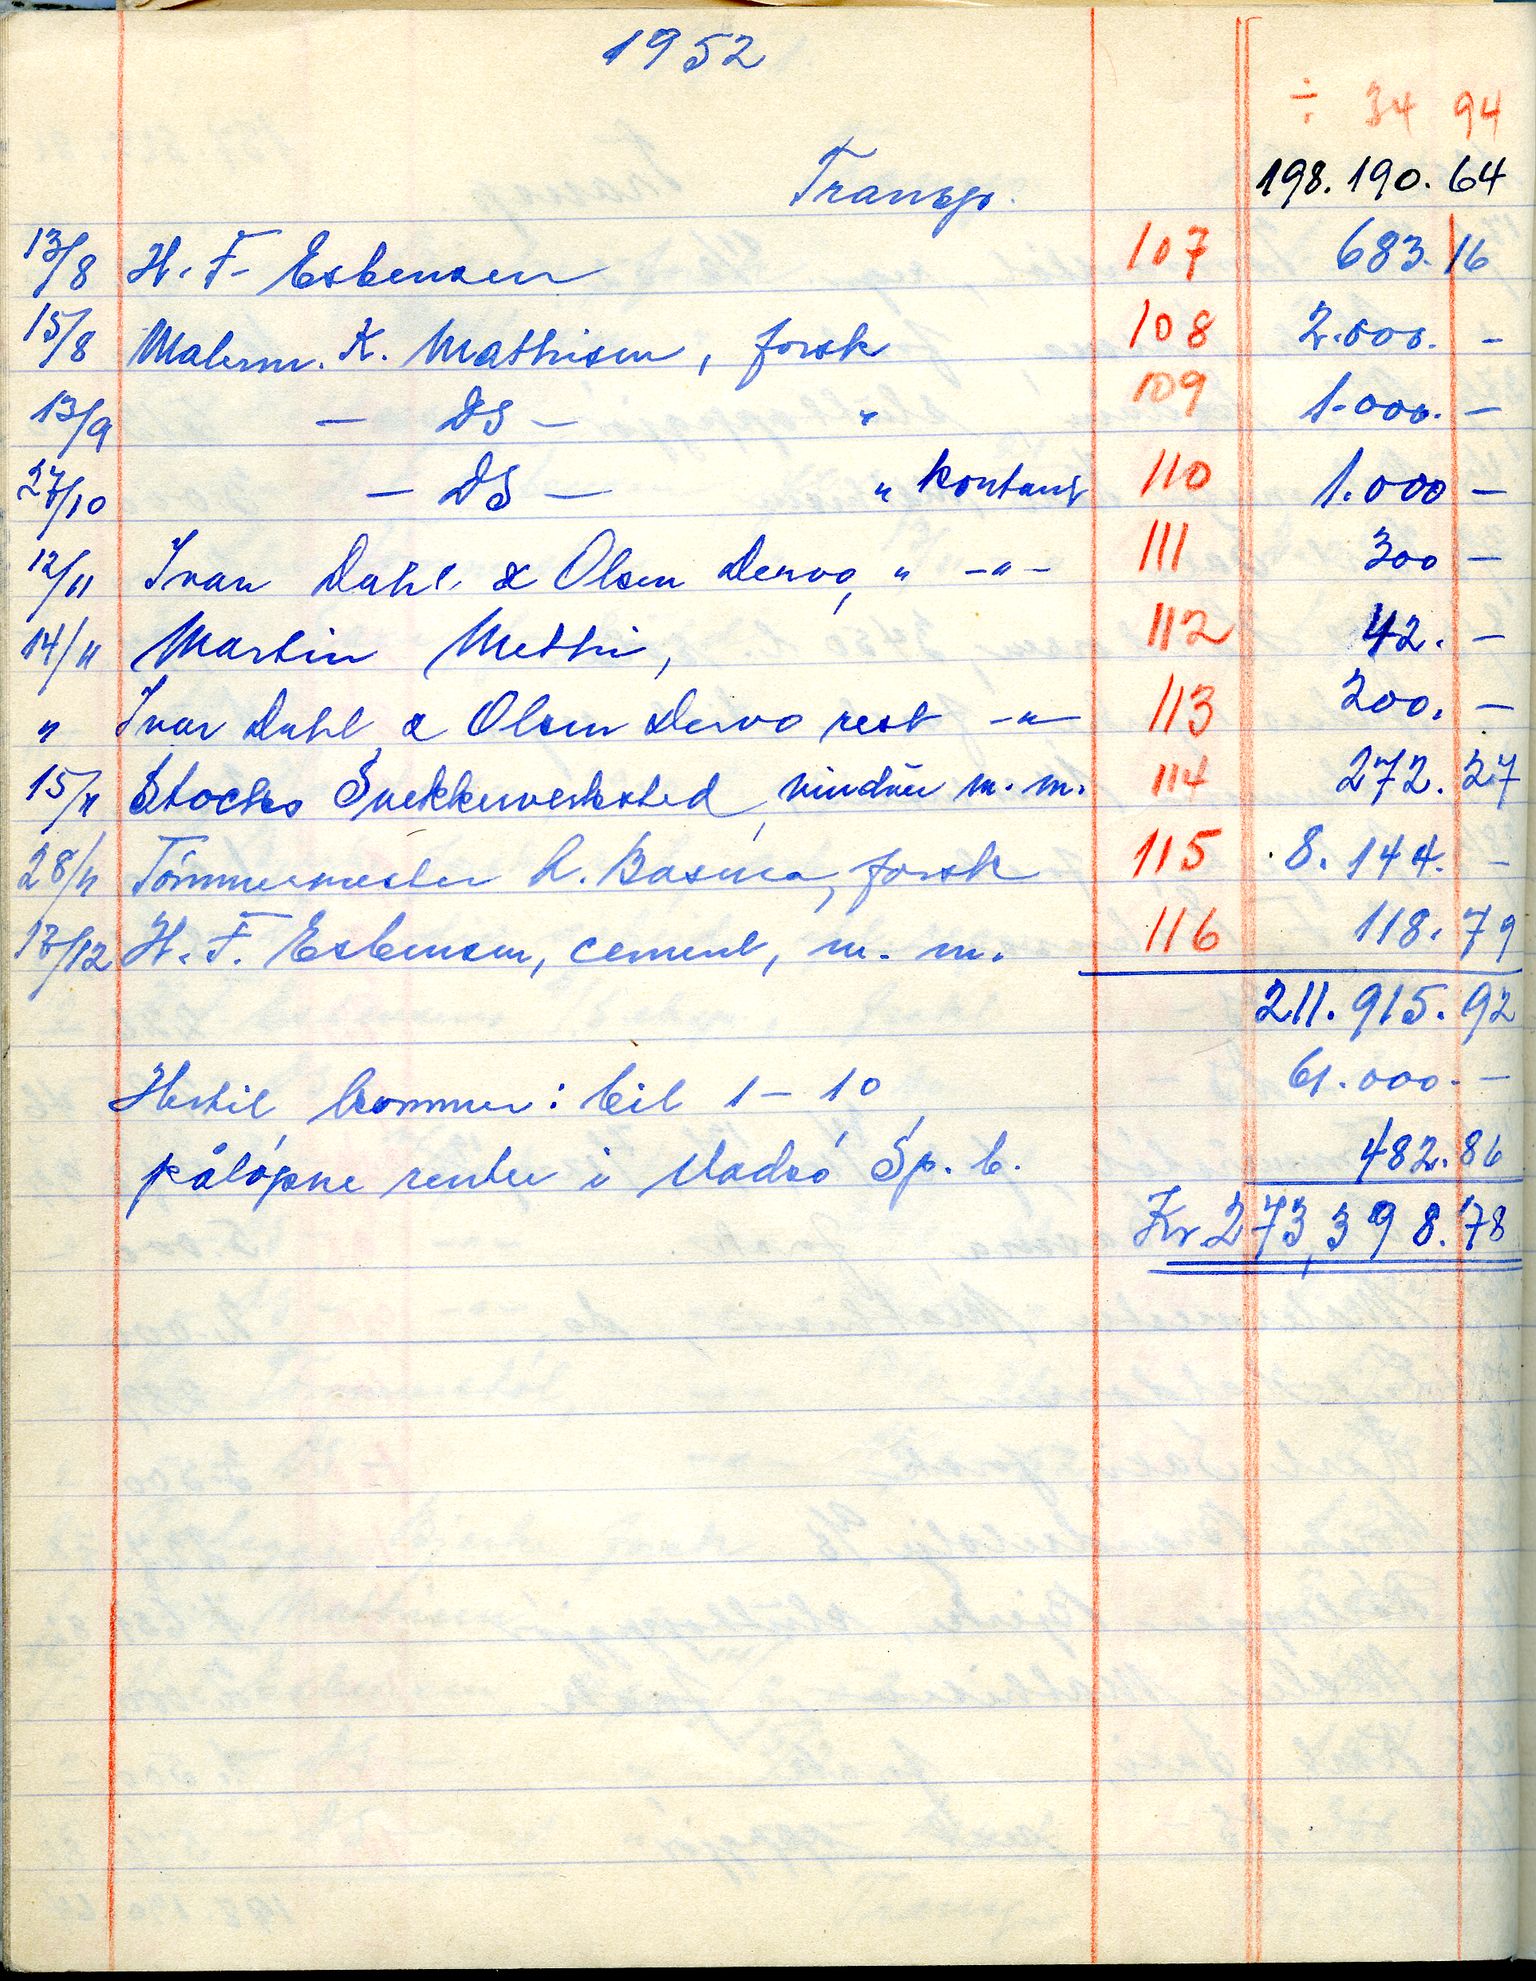 1952
÷ 34 94
Transp. 198.190.64
13/8 H. F. Esbensen 107 683.16
15/8 Malerm. K. Mathisen, forsk 108 2.000. -
13/9 - DS - " 109 1.000. -
27/10 - DS - " kontant 110 1.000 -
12/11 Ivar Dahl & Olsen Dervo, " -"- 111 300 -
14/11 Martin Methi, 112 42. -
" Ivar Dahl & Olsen Dervo rest -"- 113 200. -
15/11 Stocks Snekkerverksted, vindu m. m. 114 272.27
28/11 Tömmermester A. Basma, forsk 115 8.144. -
/12 H. F. Esbensen, cement, m. m. 116 118.79
211.915.92
Hertil kommer: bil 1-10 61.000. -
påløpne renter i Vadsø Sp. b. 482.86
Kr. 273,398.78